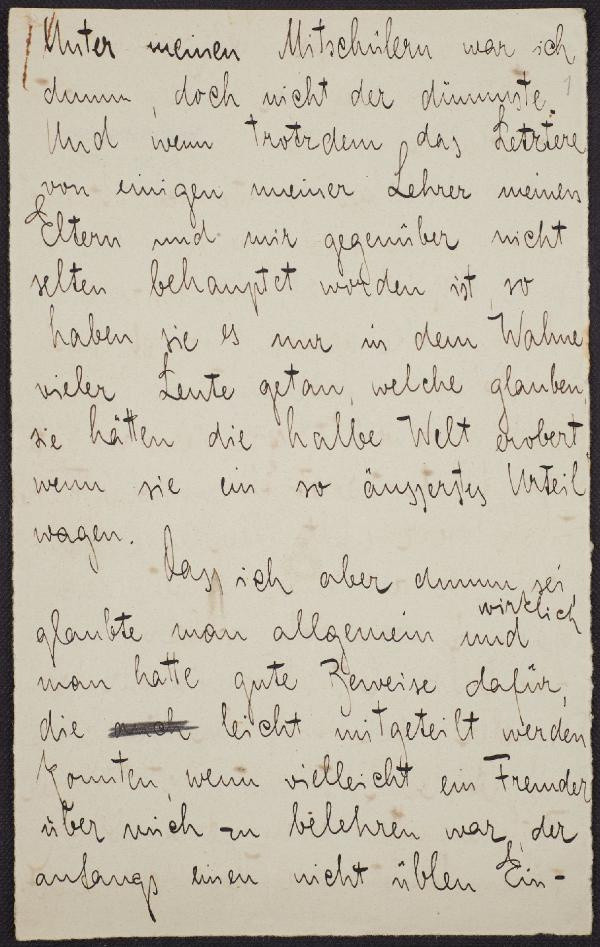 Unter meinen Mitschülern war ich
dumm, doch nicht der dümmste.
1
Und wenn trotzdem das Letztere
von einigen meiner Lehrer meinen
Eltern und mir gegenüber nicht
selten behauptet worden ist, so
haben sie es nur in dem Wahne
vieler Leute getan, welche glauben,
sie hätten die halbe Welt erobert,
wenn sie ein so äusserstes Urteil
wagen.
Dass ich aber dumm sei,
glaubte man allgemein und wirklich
man hatte gute Beweise dafür,
die leicht mitgeteilt werden
konnten, wenn vielleicht ein Fremder
über mich zu belehren war, der
anfangs einen nicht üblen Ein-